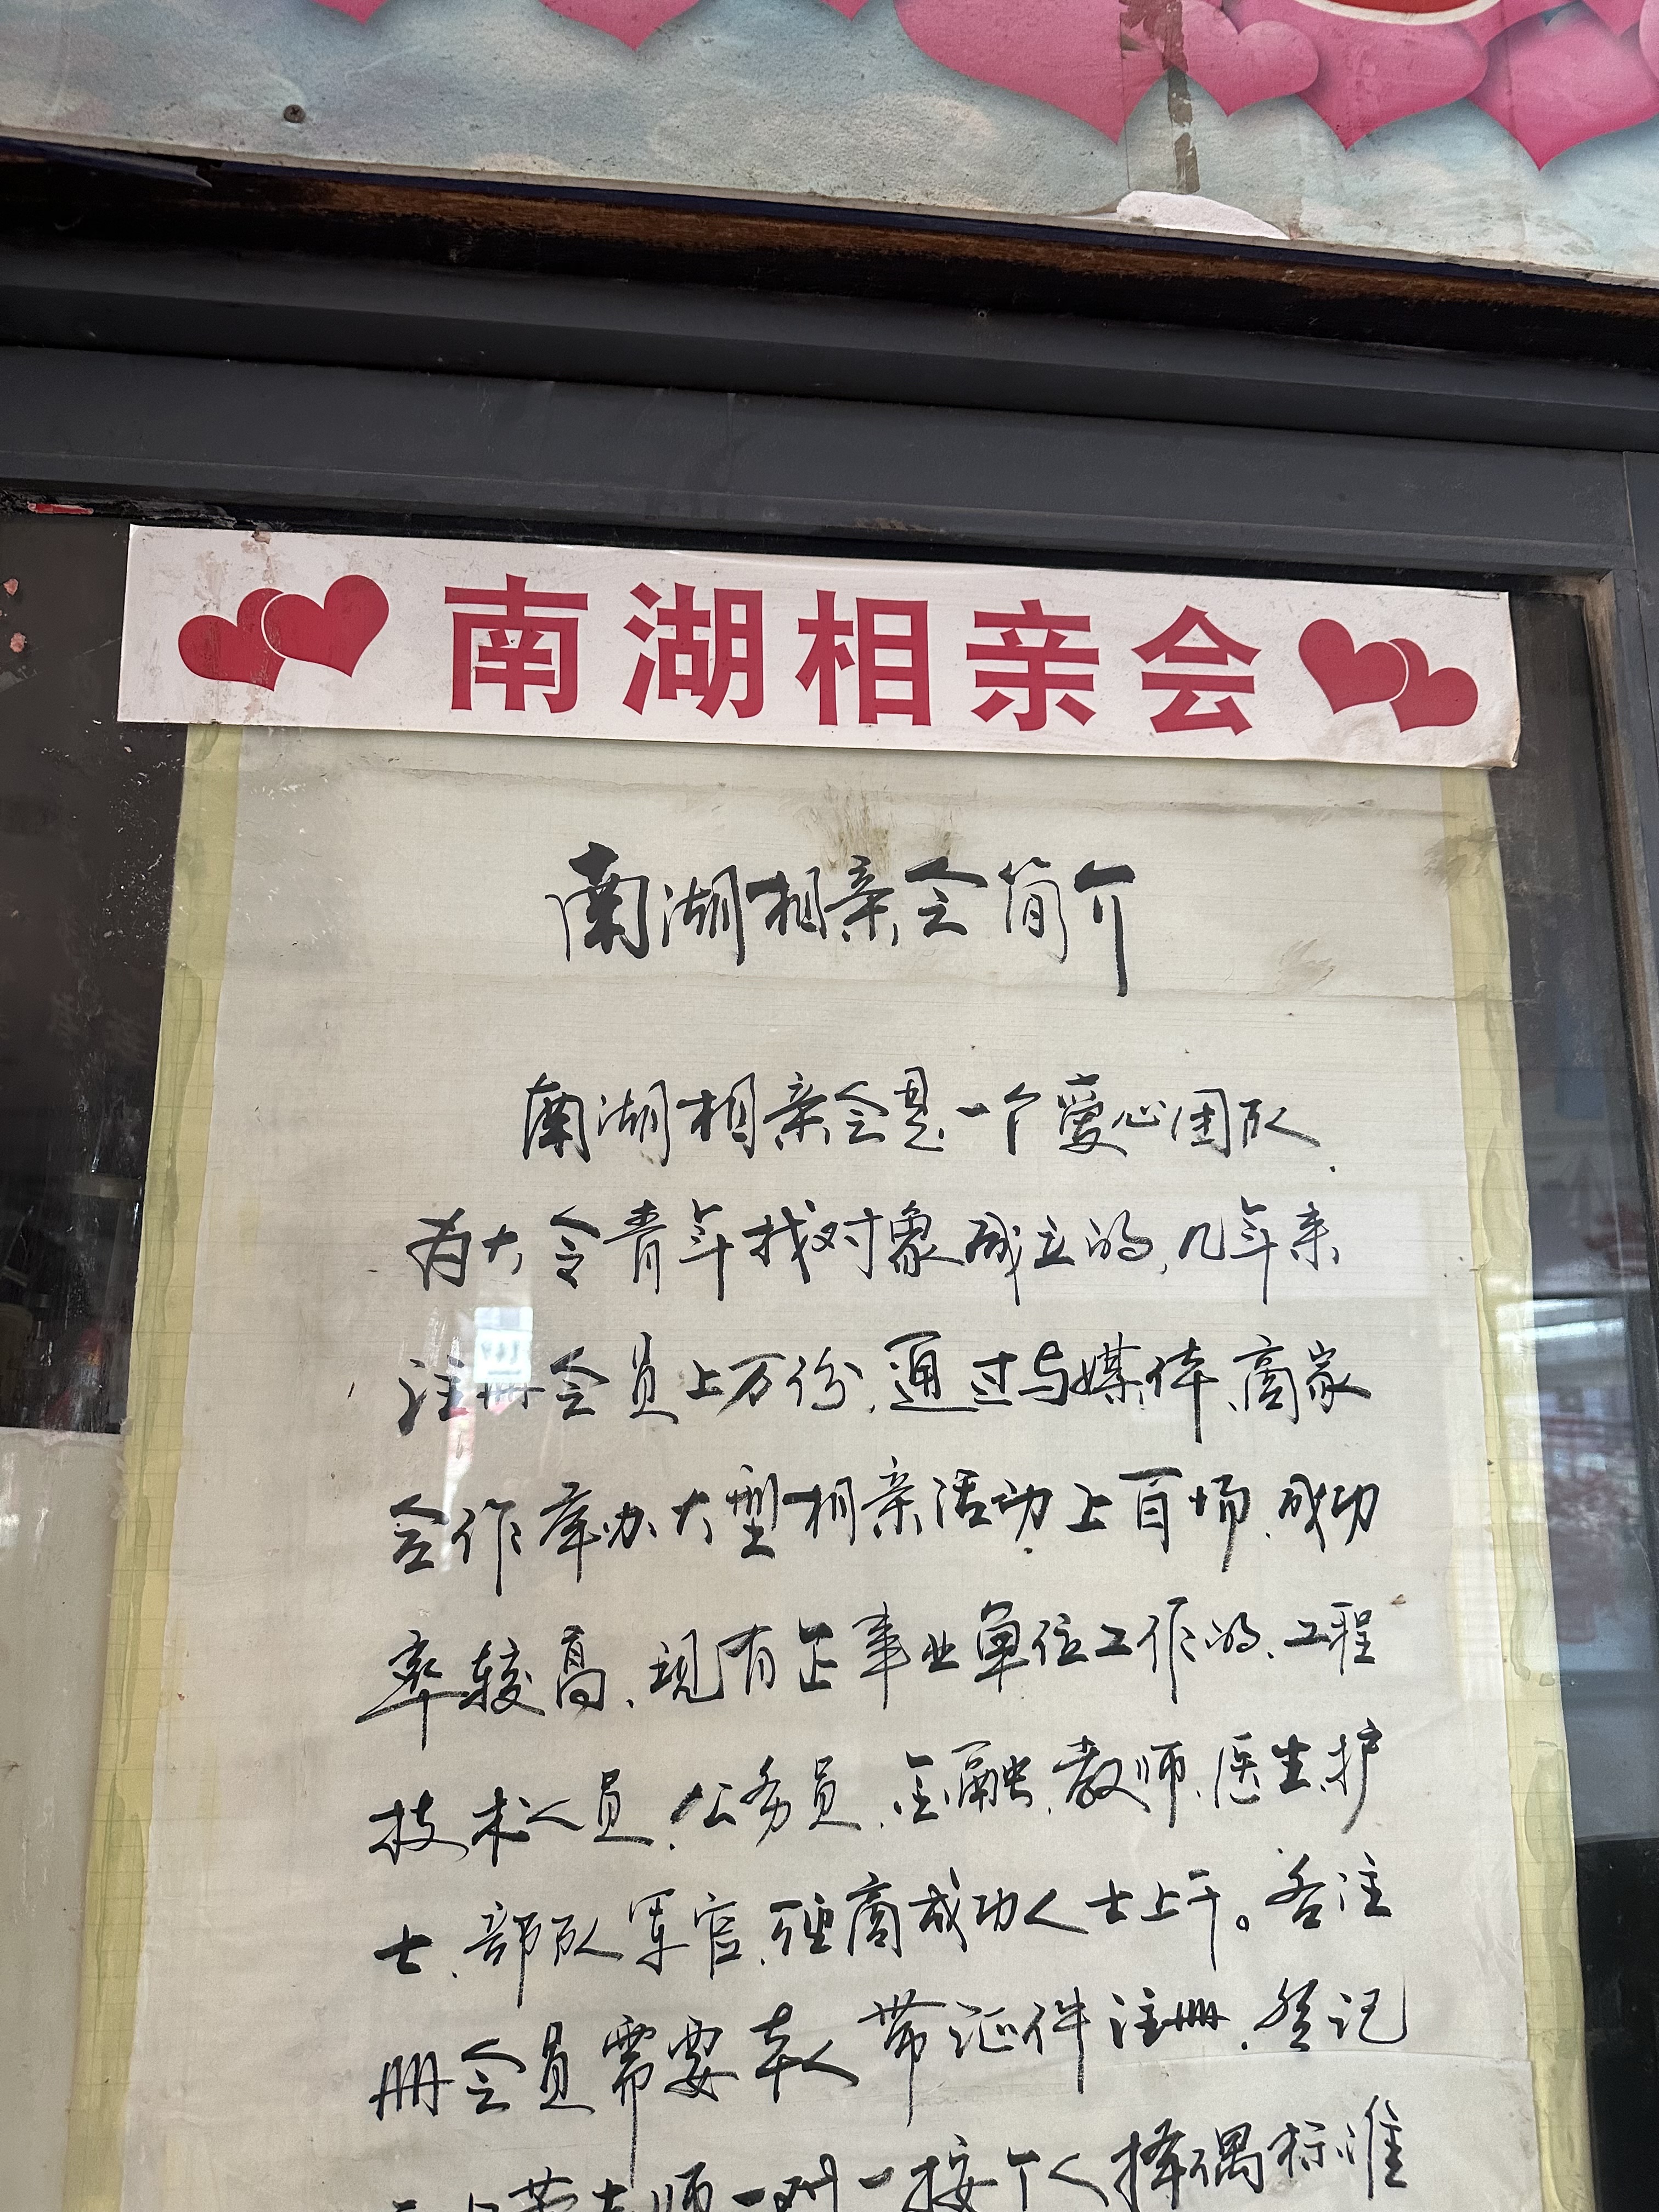 南湖相亲会
南湖相亲会简介
南湖相亲会是一个爱心团队
为大令青年找对象成立的,几年来
注册会员上万份,通过与媒体、商家
合作举办大型相亲活动上百场,成功
率较高、现有企事业单位工作的、工程
技术人员、公务员、金融、教师、医生、护
士、部队军官、经商成功人士上千。各注
册会员需要本人带证件注册、登记
老师一对一按个人择偶标准